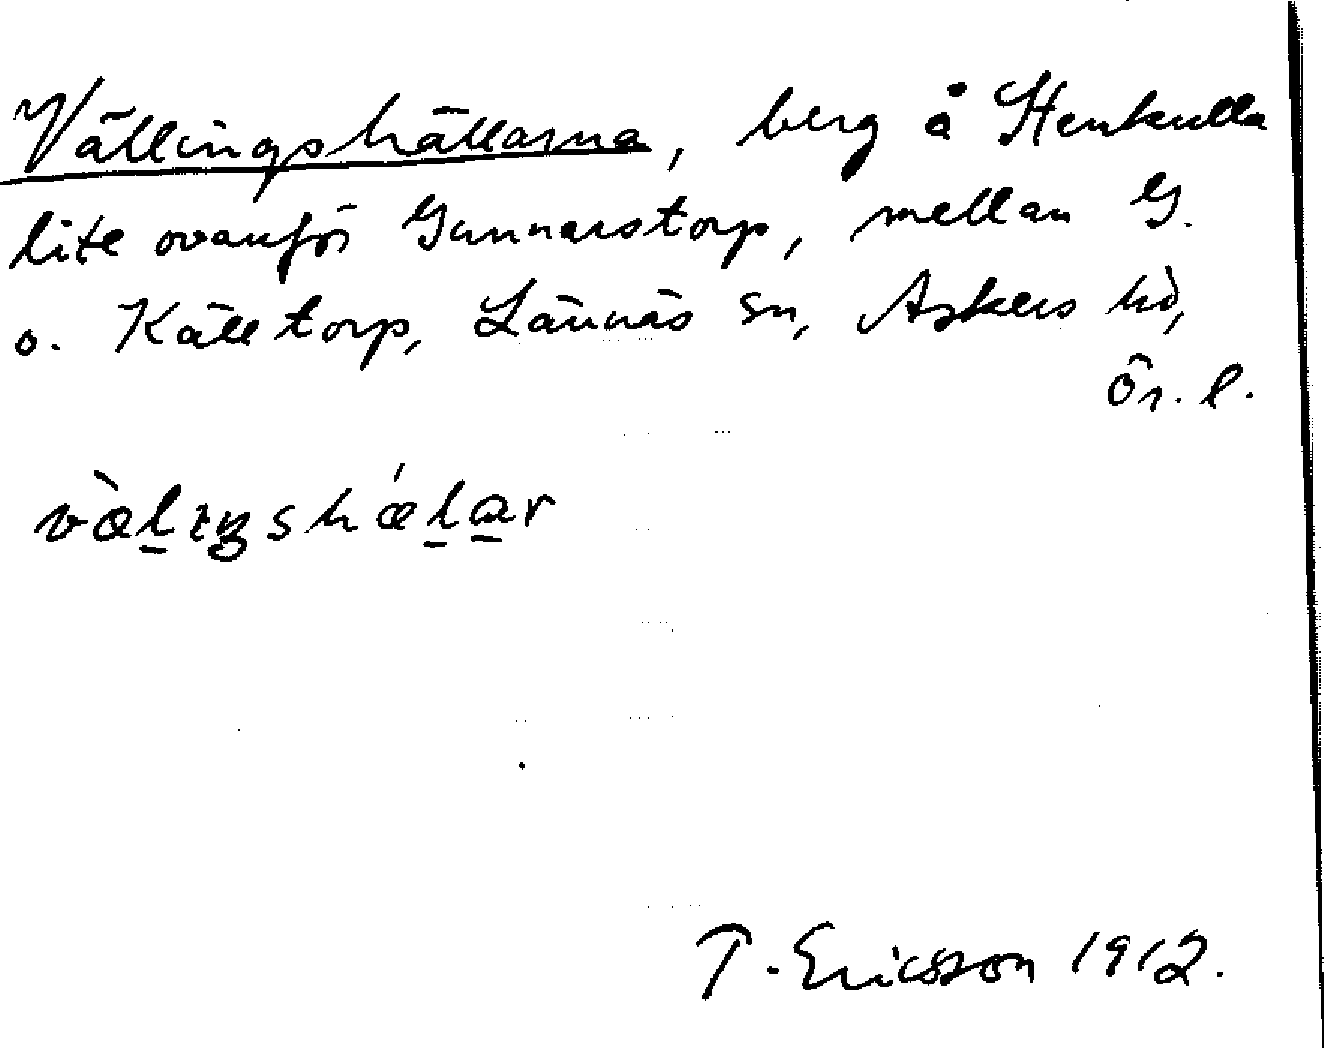 Vällingshällarna, berg å Stenkulla
lite ovanför Gunnarstorp, mellan G.
o. Källtorp, Lännäs sn, Askers hd,
Ör. l.
vὰl̠ıŋshǽl̠a̠r
T. Ericsson 1912.